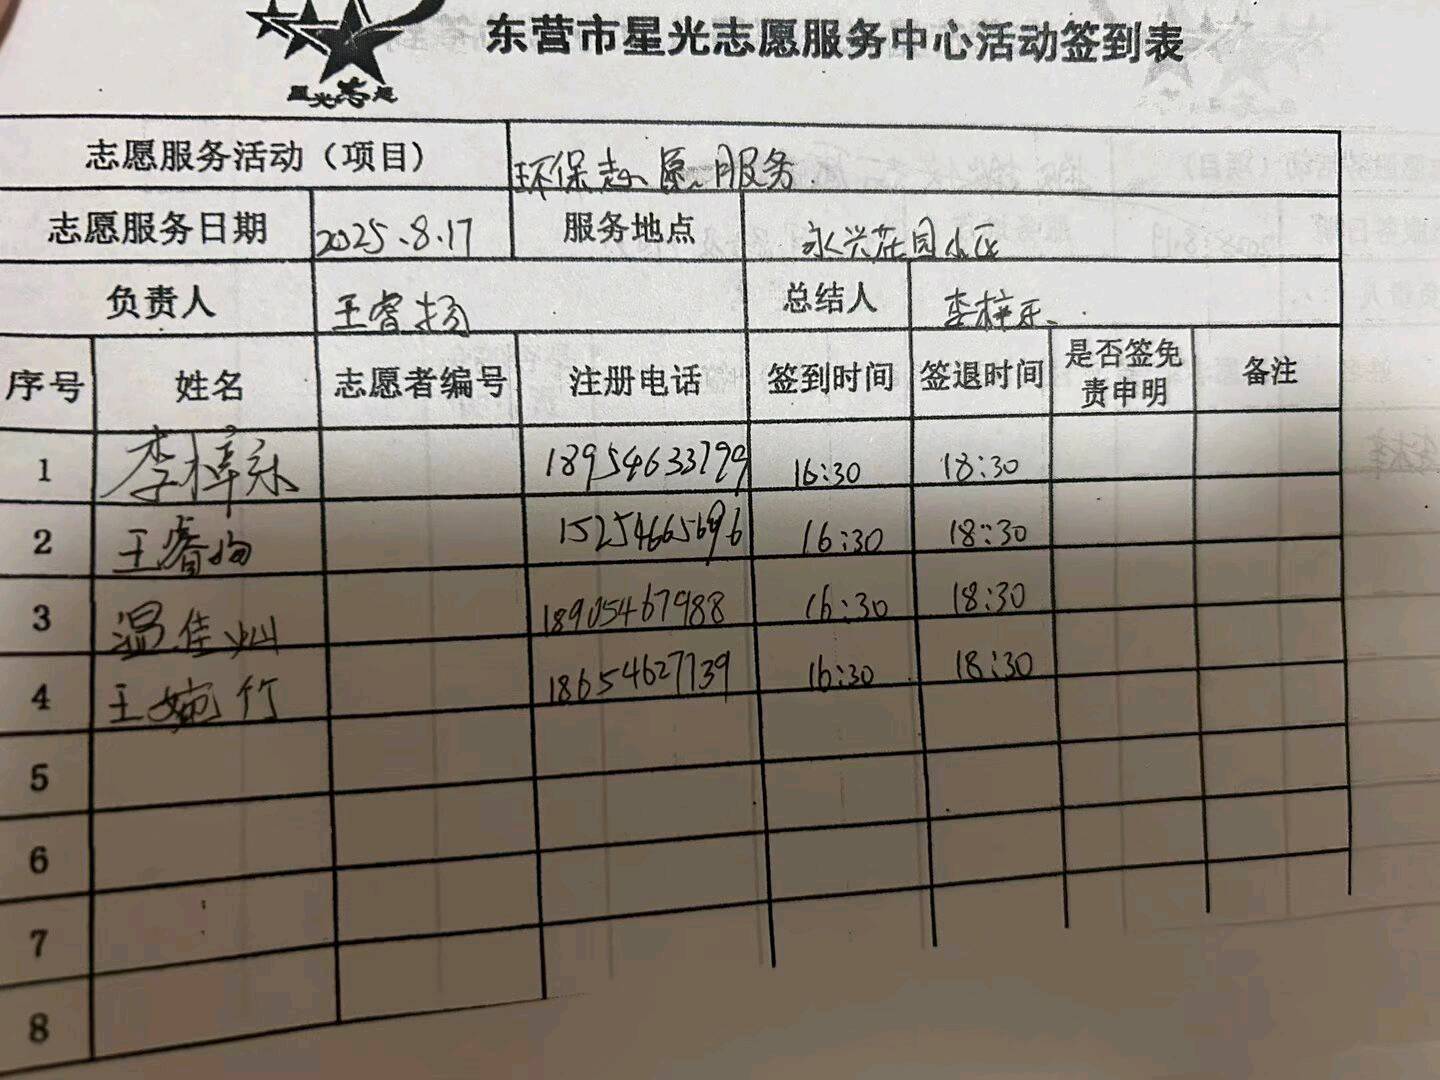 星光志愿
东营市星光志愿服务中心活动签到表
志愿服务活动（项目） 环保志愿服务.
志愿服务日期 2025.8.17 服务地点 永兴花园小区
负责人 王睿扬 总结人 李梓乐.
序号 姓名 志愿者编号 注册电话 签到时间 签退时间 是否签免责申明 备注
1 李梓乐 18954633799 16:30 18:30
2 王睿扬 15254665696 16:30 18:30
3 温佳灿 18905467988 16:30 18:30
4 王婉竹 18654627739 16:30 18:30
5
6
7
8